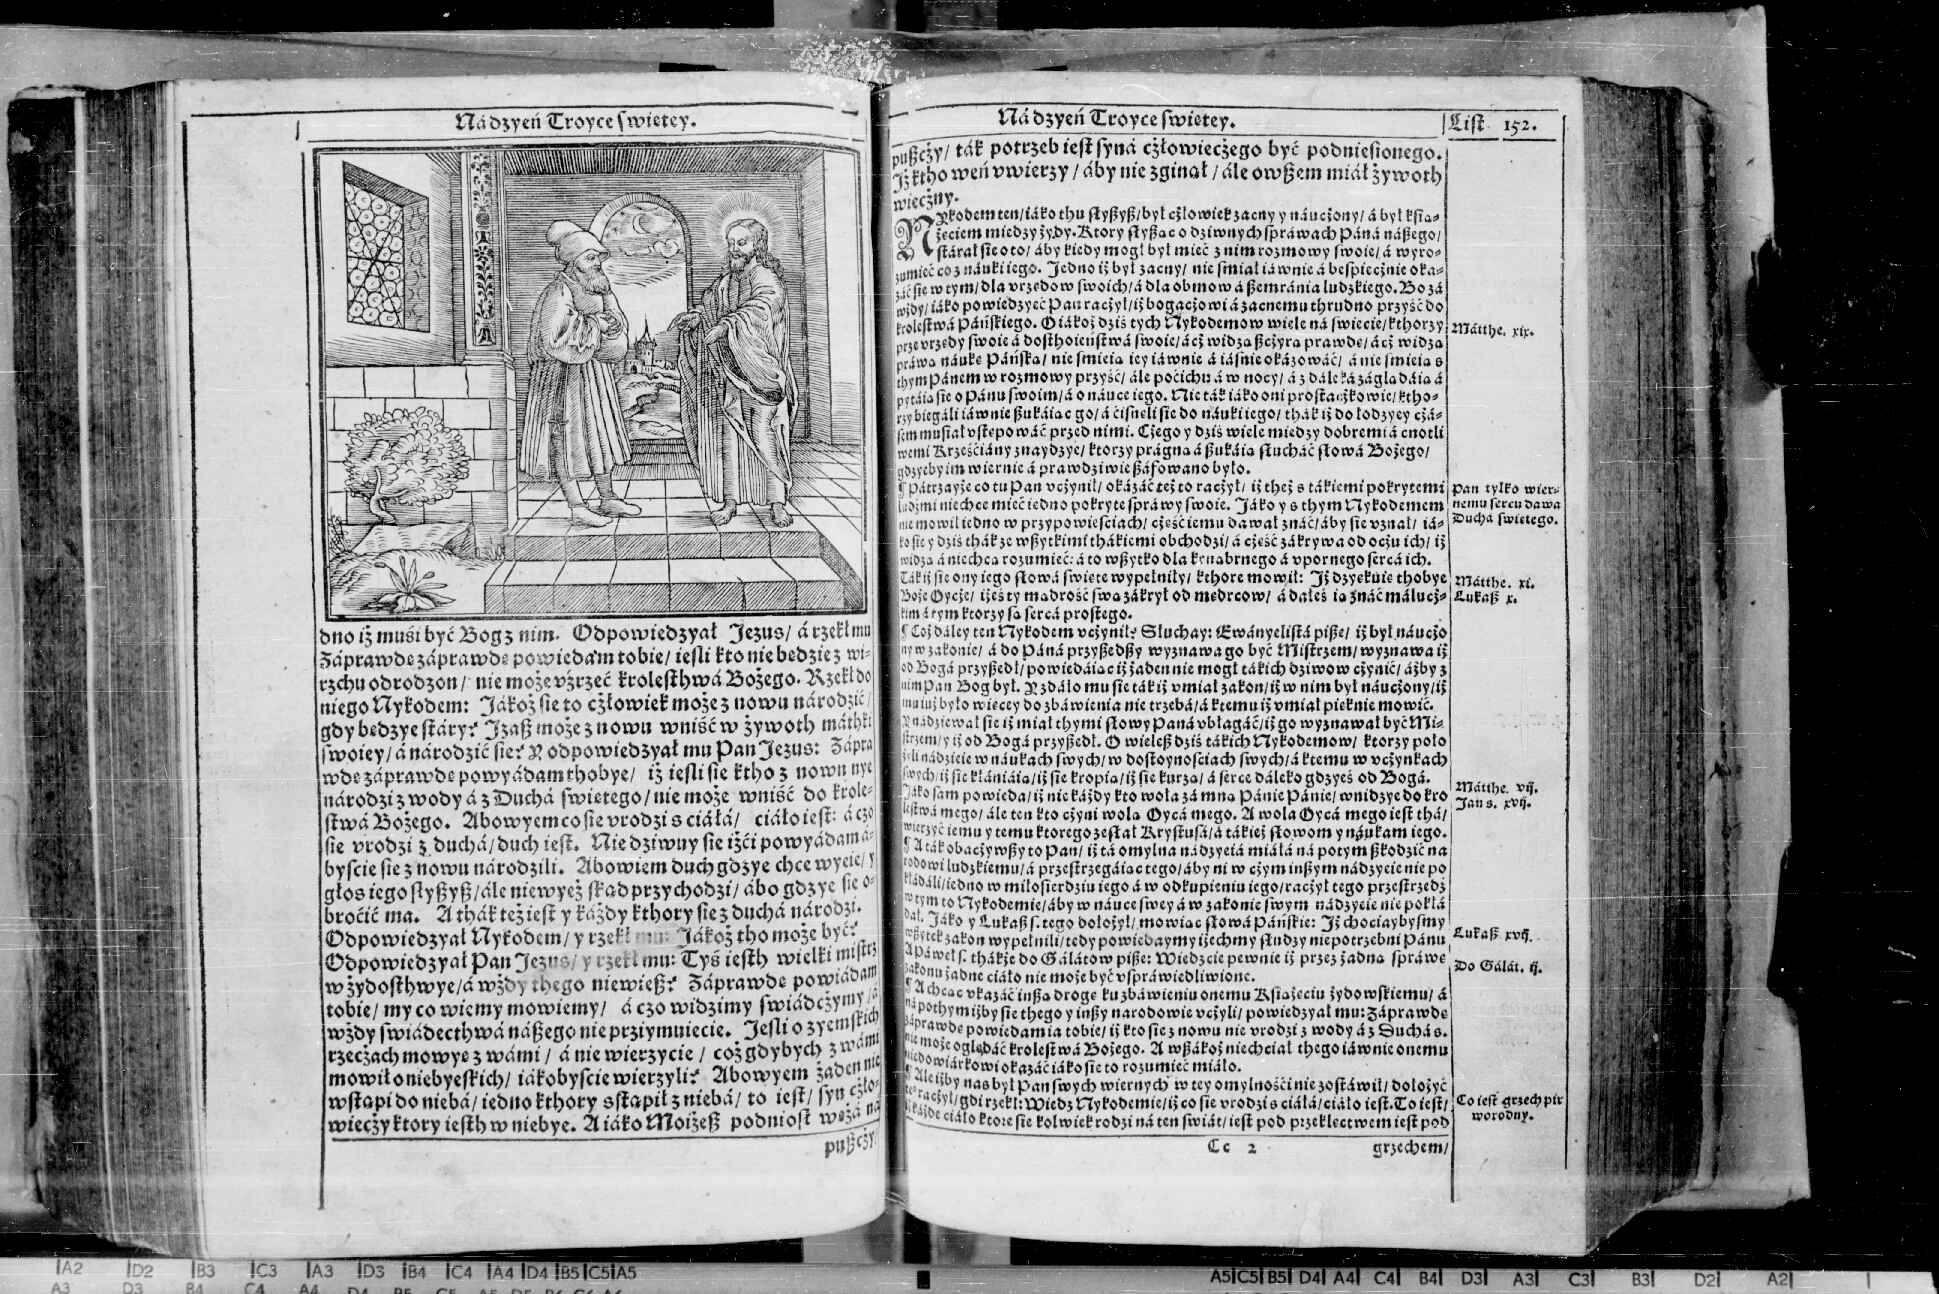 Ná dzyeń Troyce swietey.
dno iż muśi być Bog z nim. Odpowiedzyał Jezus/ á rzekł mu
Záprawdę záprawdę powiedam tobie/ iesli kto nie bedzie z wi-
rzchu odrodzon/ nie może vźrzeć krolesthwá Bożego. Rzekł do
niego Nykodem: Jákoż sie to cżłowiek może z nowu národzić/
gdy bedzye stáry? Jzasz może z nowu wniść w żywoth máthki
swoiey/ á národzić sie? Y odpowiedzyał mu Pan Jezus: Zápra
wdę záprawdę powyádam thobye/ iż iesli sie ktho z nowu nye
národzi z wody á z Duchá swietego/ nie może wniść do krole-
stwá Bożego. Abowyem co sie vrodzi s ciáłá/ ciáło iest: á czo
sie vrodzi z duchá/ duch iest. Nie dziwuy sie iżći powyádam á-
byscie sie z nowu národzili. Abowiem duch gdzye chce wyeie/ y
głos iego słyszysz/ ále niewyeż skąd przychodzi/ ábo gdzye sie o-
broćić ma. A thák też iest y káżdy kthory sie z duchá národzi.
Odpowiedzyał Nykodem/ y rzekł mu: Jákoż tho może być?
Odpowiedzyał Pan Jezus/ y rzekł mu: Tyś iesth wielki mistrz
w żydosthwye/ á wżdy thego niewiesz? Záprawdę powiádam
tobie/ my co wiemy mowiemy/ á czo widzimy swiádcżymy/ á
wżdy swiádecthwá nászego nie prziymuiecie. Jesli o zyemskich
rzecżach mowyę z wámi/ á nie wierzycie/ coż gdybych z wámi
mowił o niebyeskich/ iákobyscie wierzyli? Abowyem żaden nie
wstąpi do niebá/ iedno kthory sstąpił z niebá/ to iest/ syn cżło-
wiecży ktory iesth w niebye. A iáko Moiżesz podniosł wężá ná
puszcży
Ná dzyeń Troyce swietey.
List 152.
puszcży/ ták potrzeb iest syná cżłowiecżego być podniesionego.
Jż ktho weń vwierzy/ áby nie zginął/ ále owszem miał żywoth
wiecżny.
NYkodem ten/ iáko thu słyszysz/ był cżłowiek zacny y náucżony/ á był ksią-
żęciem miedzy żydy. Ktory słysząc o dziwnych spráwach Páná nászego/
stárał sie o to/ áby kiedy mogł był mieć z nim rozmowy swoie/ á wyro-
zumieć co z náuki iego. Jedno iż był zacny/ nie smiał iáwnie á bespiecżnie oka-
zać sie w tym/ dla vrzędow swoich/ á dla obmow á szemránia ludzkiego. Bo zá
wżdy/ iáko powiedzyeć Pan racżył/ iż bogacżowi á zacnemu thrudno przyść do
krolestwá Páńskiego. O iákoż dziś tych Nykodemow wiele ná swiecie/ kthorzy
prze vrzędy swoie á dosthoieństwá swoie/ ácż widzą szcżyrą prawdę/ ácż widzą
práwą náukę Páńską/ nie smieią iey iáwnie á iásnie okázowáć/ á nie smieią s
thym Pánem w rozmowy przyść/ ále poćichu á w nocy/ á z dáleká zágladáią á
pytáią sie o Pánu swoim/ á o náuce iego. Nie ták iáko oni prostacżkowie/ ktho-
rzy biegáli iáwnie szukáiąc go/ á ćisnęli sie do náuki iego/ thák iż do łodzyey cżá-
sem musiał vstępowáć przed nimi. Cżego y dziś wiele miedzy dobremi á cnotli
wemi Krześciány znaydzye/ ktorzy prágną á szukáią słucháć słowá Bożego/
gdzyeby im wiernie á prawdziwie száfowano było.
¶ Pátrzayże co tu Pan vcżynił/ okázáć też to racżył/ iż theż s tákiemi pokrytemi
ludźmi niechce mieć iedno pokryte spráwy swoie. Jáko y s thym Nykodemem
nie mowił iedno w przypowiesciach/ cżęść iemu dawał znáć/ áby sie vznał/ iá-
ko sie y dziś thák ze wszytkimi thákiemi obchodzi/ á cżęść zákrywa od ocżu ich/ iż
widzą á niechcą rozumieć: á to wszytko dla krnąbrnego á vpornego sercá ich.
Ták iż sie ony iego słowá swięte wypełniły/ kthore mowił: Jż dzyekuię thobye
Boże Oycże/ iżeś ty mądrość swą zákrył od mędrcow/ á dałeś ią znáć málucż-
kim á tym ktorzy są sercá prostego.
¶ Coż dáley ten Nykodem vcżynił? Słuchay: Ewányelistá pisze/ iż był náucżo
ny w zakonie/ á do Páná przyszedszy wyznawa go być Mistrzem/ wyznawa iż
od Bogá przyszedł/ powiedáiąc iż żaden nie mogł tákich dziwow cżynić/ áżby z
nim Pan Bog był. Y zdáło mu sie ták iż vmiał zakon/ iż w nim był náucżony/ iż
mu iuż było więcey do zbáwienia nie trzebá/ á k temu iż vmiał pięknie mowić.
Y nádziewał sie iż miał thymi słowy Páná vbłagáć/ iż go wyznawał być Mi-
strzem/ y iż od Bogá przyszedł. O wielesz dziś tákich Nykodemow/ ktorzy poło
żyli nádzieię w náukach swych/ w dostoynosciach swych/ á k temu w vcżynkach
swych/ iż sie kłániáią/ iż sie kropią/ iż sie kurzą/ á serce dáleko gdzyeś od Bogá.
Jáko sam powieda/ iż nie káżdy kto woła zá mną Pánie Pánie/ wnidzye do kro
lestwá mego/ ále ten kto cżyni wolą Oycá mego. A wola Oycá mego iest thá/
wierzyć iemu y temu ktorego zesłał Krystusá/ á tákież słowom y náukam iego.
¶ A ták obacżywszy to Pan/ iż tá omylna nádzyeiá miáłá ná potym szkodzić na
rodowi ludzkiemu/ á przestrzegáiąc tego/ áby ni w cżym inszym nádzyeie nie po
kłádáli/ iedno w miłosierdziu iego á w odkupieniu iego/ racżył tego przestrzedz
w tym to Nykodemie/ áby w náuce swey á w zakonie swym nádzyeie nie pokłá
dał. Jáko y Lukasz s. tego dołożył/ mowiąc słowá Páńskie: Jż chociaybysmy
wszytek zakon wypełnili/ tedy powiedaymy iżechmy słudzy niepotrzebni Pánu
A Páweł s. thákże do Gálatow pisze: Wiedzcie pewnie iż przez żadną spráwę
zakonu żadne ciáło nie może być vspráwiedliwione.
¶ A chcąc vkazáć inszą drogę ku zbáwieniu onemu Książęciu żydowskiemu/ á
ná pothym iżby sie thego y inszy narodowie vcżyli/ powiedzyał mu: Záprawdę
záprawdę powiedam ia tobie/ iż kto sie z nowu nie vrodzi z wody á z Duchá s.
nie może oglądáć krolestwá Bożego. A wszákoż niechciał thego iáwnie onemu
niedowiárkowi okazáć iáko sie to rozumieć miáło.
¶ Ale iżby nas był Pan swych wiernych w tey omylnośći nie zostáwił/ dołożyć
tego racżył/ gdi rzekł: Wiedz Nykodemie/ iż co sie vrodzi s ciáłá/ ciáło iest. To iest/
iż káżde ciáło ktore sie kolwiek rodzi ná ten swiát/ iest pod przeklęctwem iest pod
Cc 2
grzechem/
Mátthe. xix.
Pan tylko wier-
nemu sercu dawa
Duchá swietego.
Mátthe. xi.
Lukasz x.
Mátthe. vij.
Jan s. xvij.
Lukasz xvij.
Do Gálát. ij.
Co iest grzech pir
worodny.
A2 D2 B3 C3 A3 D3 B4 C4 A4 D4 B5 C5 A5
A5 C5 B5 D4 A4 C4 B4 D3 A3 C3 B3 D2 A2
A3 D3 B4 C4 A4 D4 B5 C5 A5 D5 B6 C6 A6